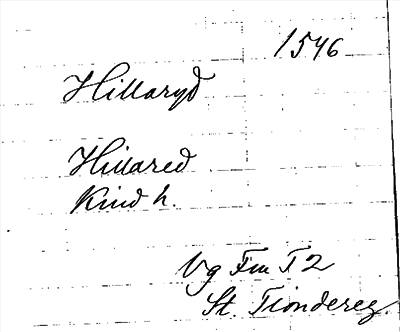 1546
Hillaryd
Hillared
Kind h.
Vg Fm T 2
St. Tiondereg.